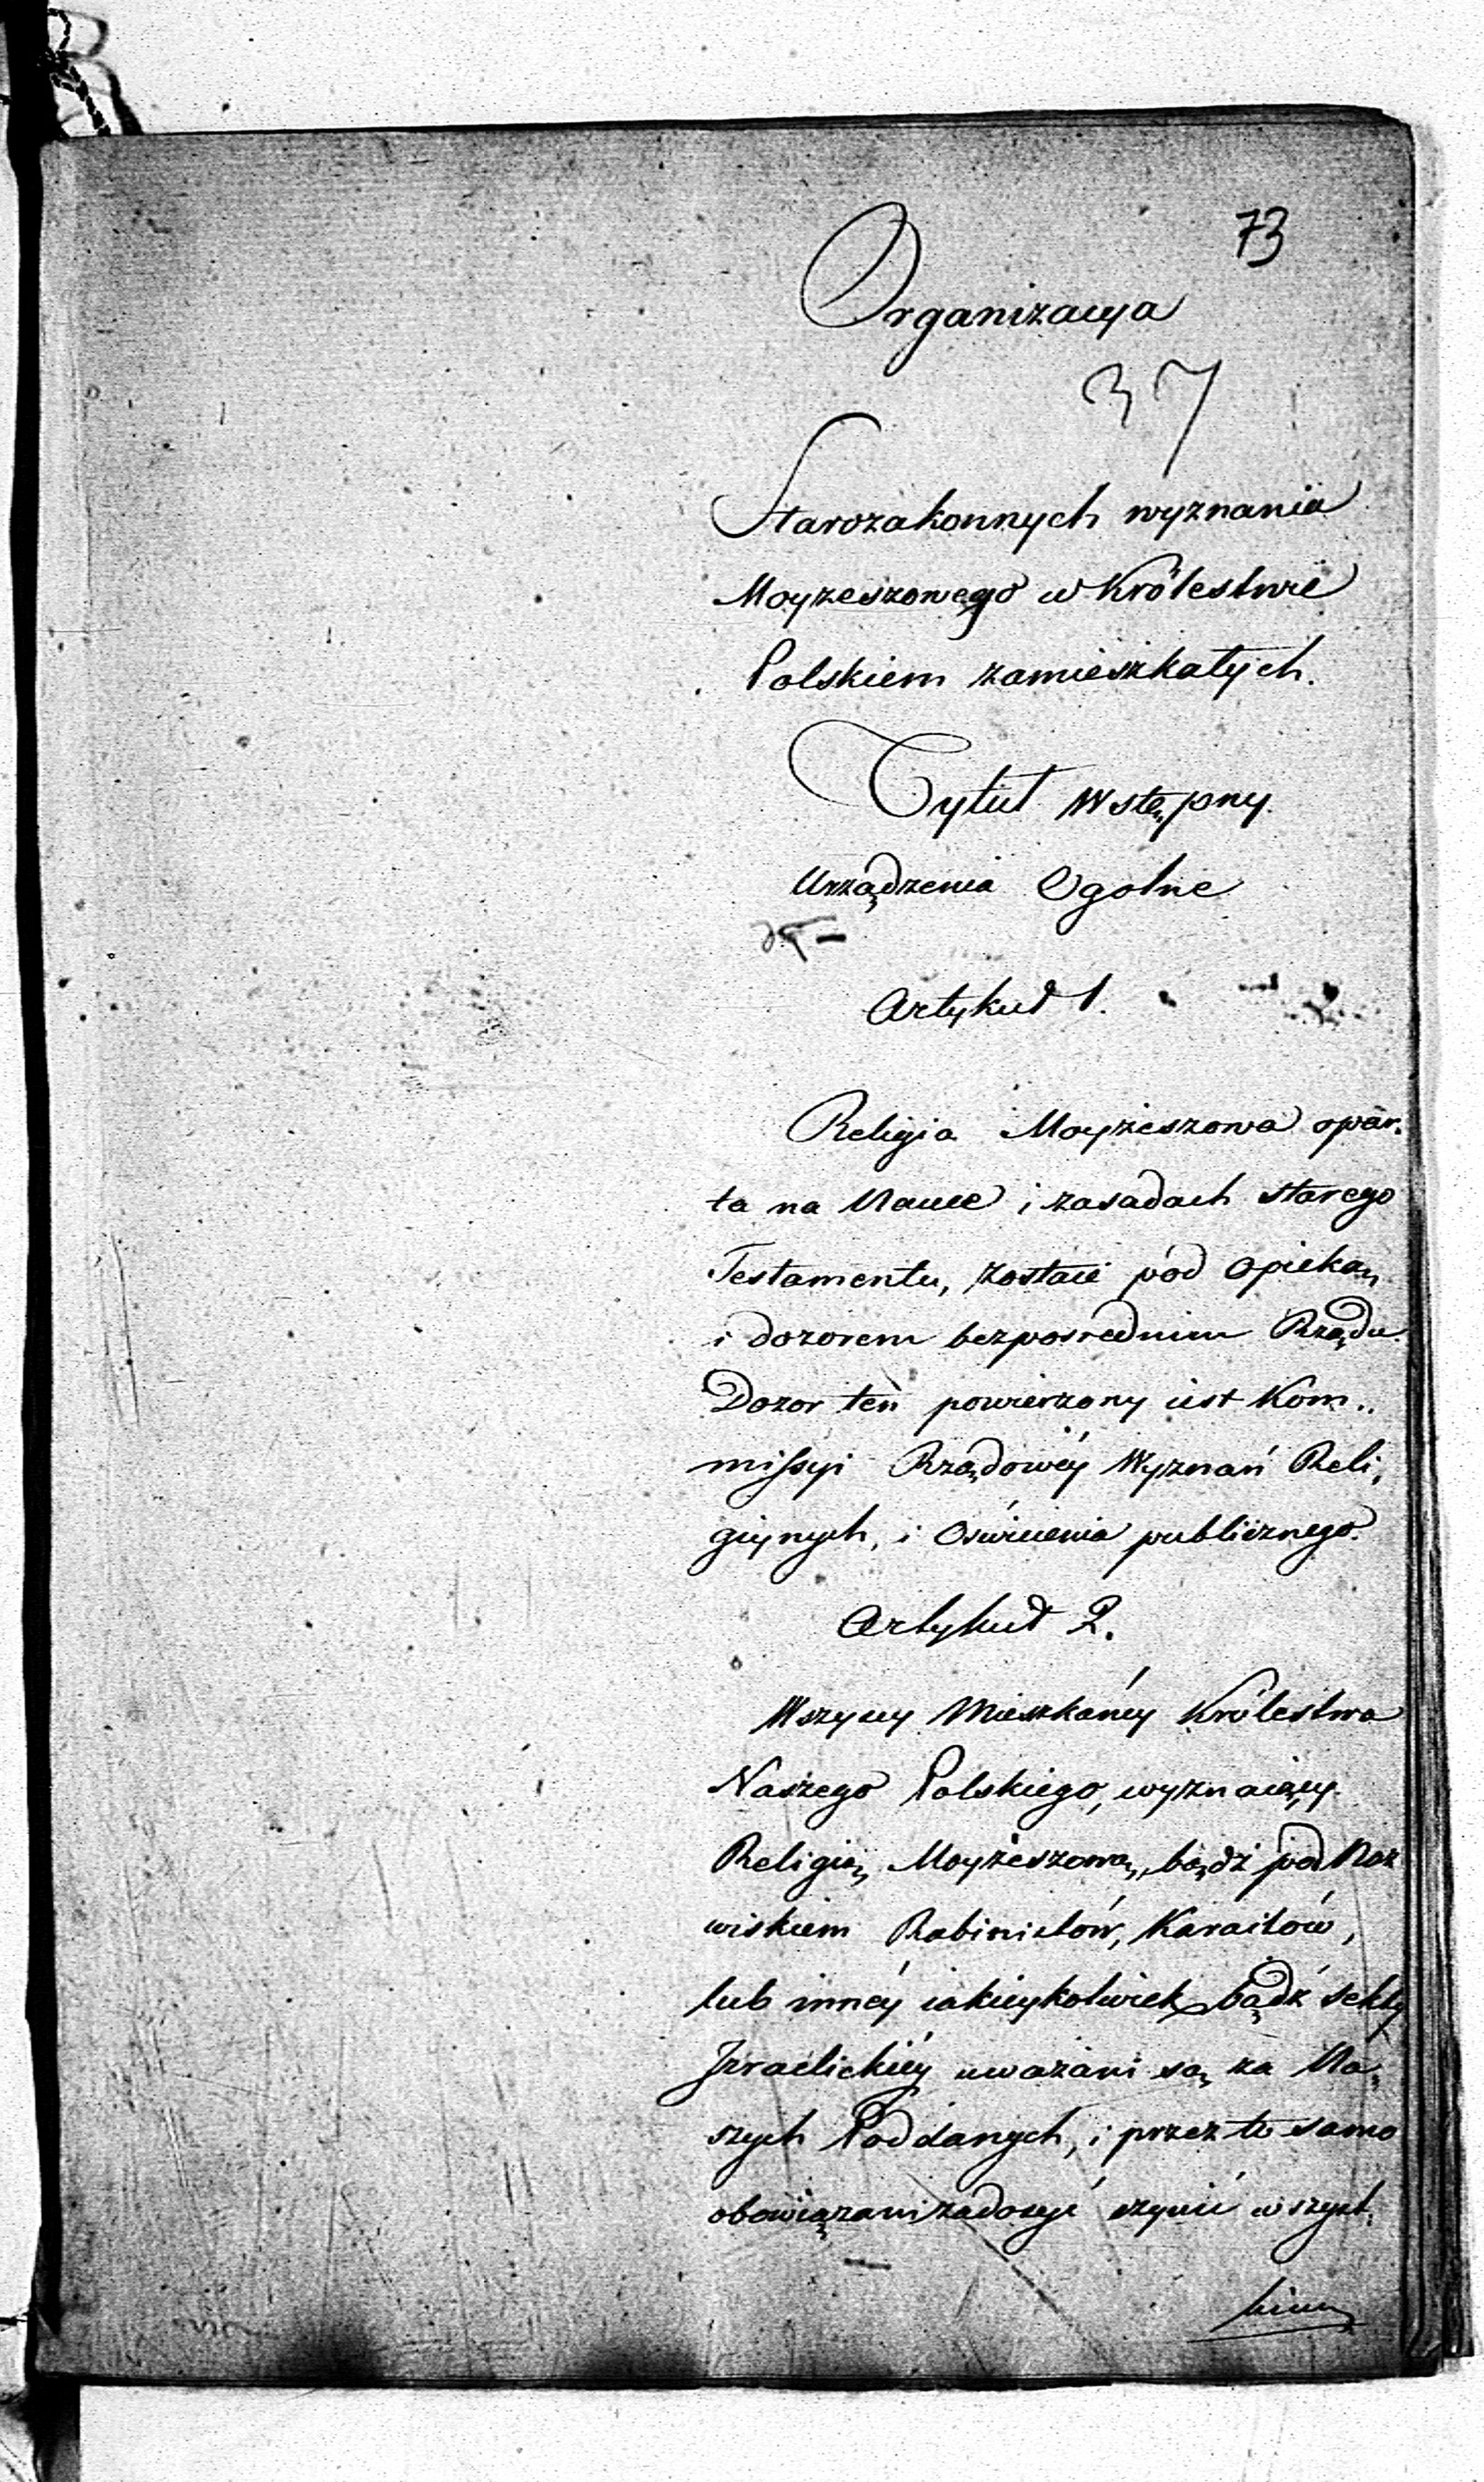 73
Organizacya
37
Starozakonnych wyznania
Moyżeszowego w Królestwie
Polskiem zamieszkałych.
Tytuł Wstępny.
Urządzenia Ogolne
Artykuł 1.
Religia Moyżeszowa opar-
ta na Nauce i zasadach starego
Testamentu, zostaie pod opieką
i dozorem bezpośrednim Rządu.
Dozor ten powierzony iest Kom-
missyi Rządowéy Wyznań Reli-
giynych, i Oświecenia publicznego.
Artykuł 2.
Wszyscy Mieszkańcy Królestwa
Naszego Polskiego, wyznaiący
Religią Moyżeszową, bądź pod Naz
wiskiem Rabinistów, Karaitów,
lub innéy iakieykolwiek bądź sekty
Izraelickiéy uważani są za Na-
szych Poddanych, i przez to samo
obowiązani zadosyć czynić wszyst-
kim